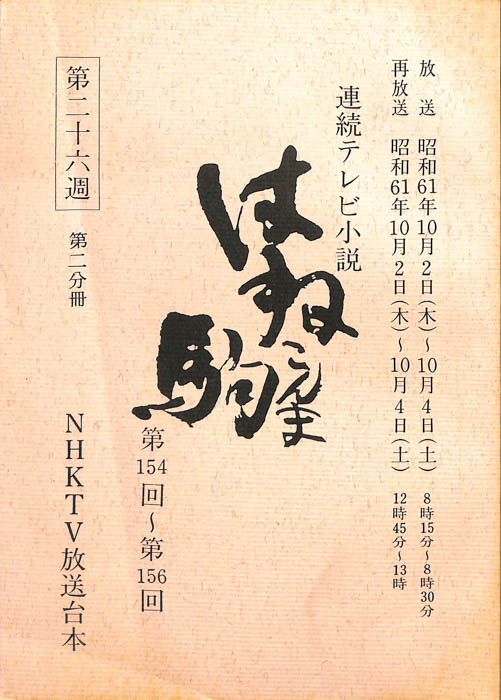 放送 昭和61年10月2日(木)～10月4日(土) 8時15分～8時30分
再放送 昭和61年10月2日(木)～10月4日(土) 12時45分～13時
連続テレビ小説
はね駒
こんま
第154回～第156回
第二十六週 第二分冊
NHKTV放送台本